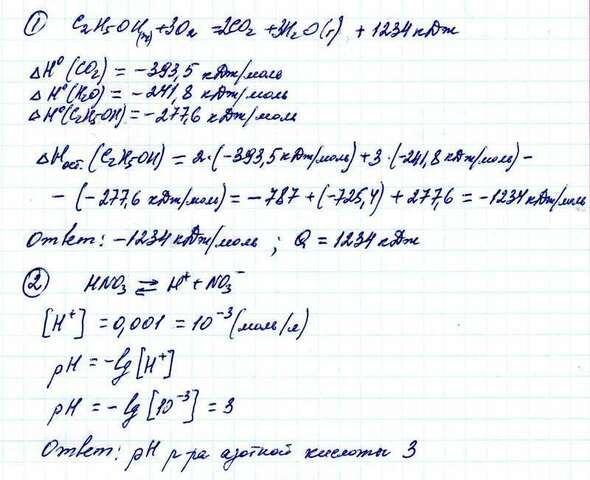 ① C₂H₅OH(ж) + 3O₂ = 2CO₂ + 3H₂O(г) + 1234 кДж
ΔH⁰(CO₂) = -393,5 кДж/моль
ΔH⁰(H₂O) = -241,8 кДж/моль
ΔH⁰(C₂H₅OH) = -277,6 кДж/моль
(C₂H₅OH) = 2·(-393,5 кДж/моль) + 3·(-241,8 кДж/моль) -
- (-277,6 кДж/моль) = -787 + (-725,4) + 277,6 = -1234 кДж/моль
Ответ: -1234 кДж/моль ; Q = 1234 кДж
② HNO₃ ⇄ H⁺ + NO₃⁻
[H⁺] = 0,001 = 10⁻³ (моль/л)
pH = -lg[H⁺]
pH = -lg[10⁻³] = 3
Ответ: pH р-ра азотной кислоты 3